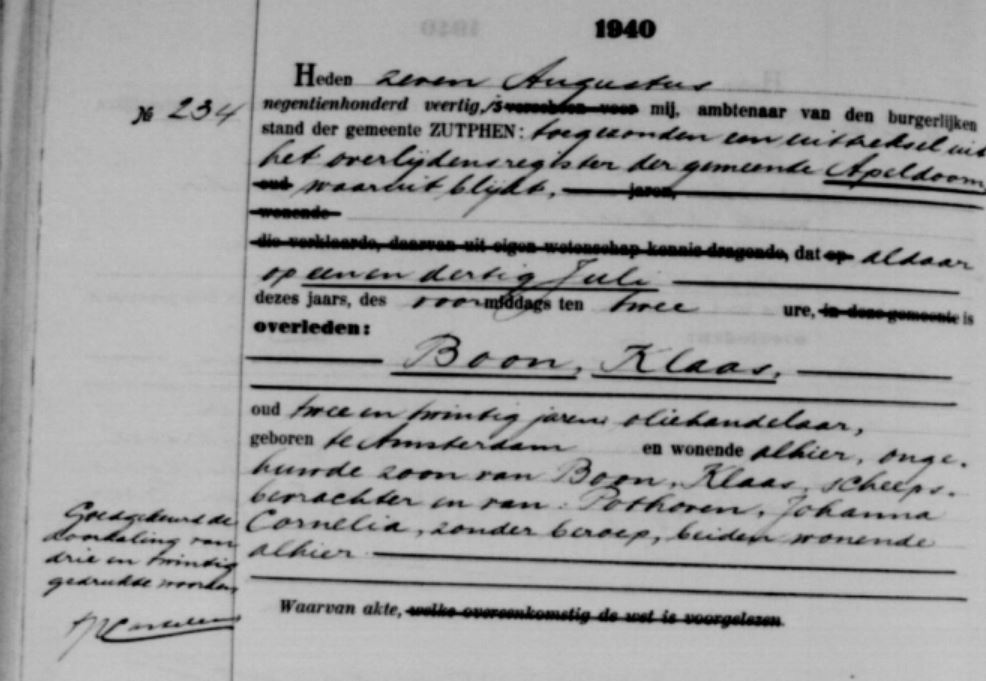 1940
Heden zeven Augustus
№ 234
negentienhonderd veertig, is verscheen voor mij, ambtenaar van den burgerlijken
stand der gemeente ZUTPHEN: toegezonden een uittreksel uit
het overlijdensregister der gemeente Apeldoorn
oud waaruit blijkt, jaren,
wonende
die verklaarde, daarvan uit eigen wetenschap kennis dragende, dat op aldaar
op een en dertig Juli
dezes jaars, des voormiddags ten twee ure, in deze gemeente is
overleden:
Boon, Klaas,
oud twee en twintig jaren, oliehandelaar,
geboren te Amsterdam en wonende alhier, onge-
huwde zoon van Boon, Klaas, scheeps-
bevrachter en van: Pothoven, Johanna
Cornelia, zonder beroep, beiden wonende
alhier
Goedgekeurd de
doorhaling van
drie en twintig
gedrukte woorden
Waarvan akte, welke overeenkomstig de wet is voorgelezen